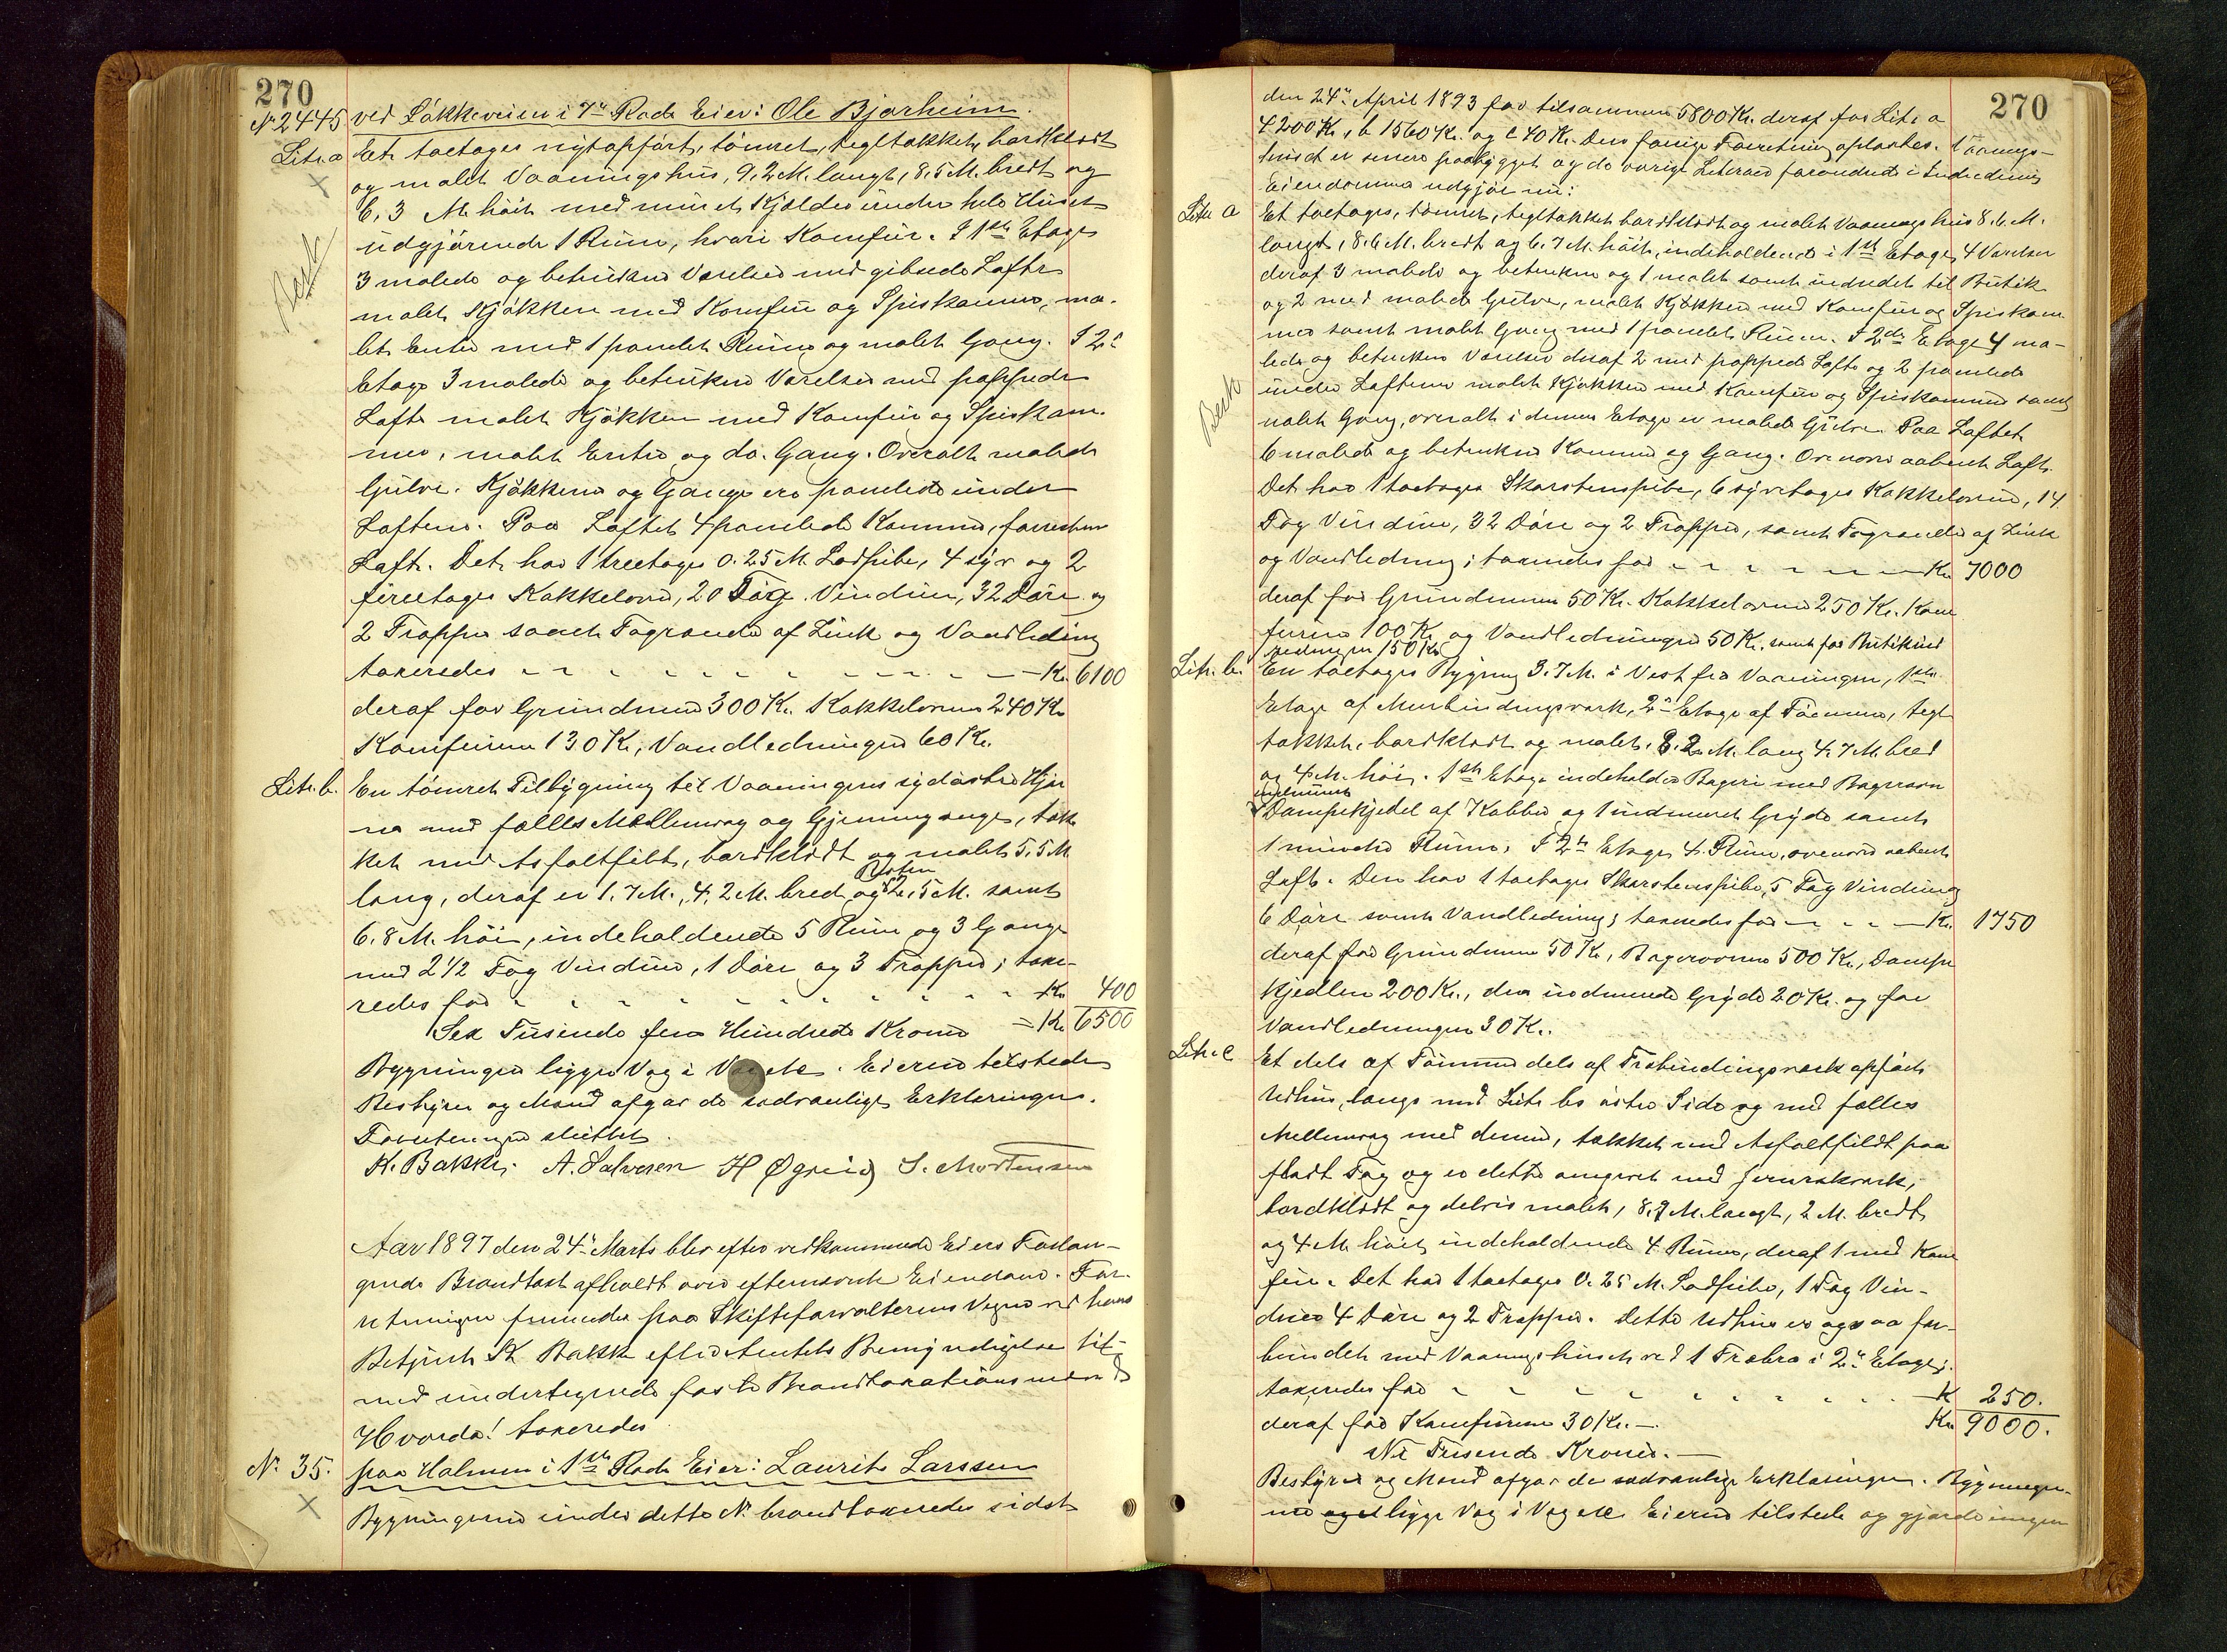 270
No 2445 ved Løkkeveien i 7de Rode Eier: Ole Bjørheim.
Litr. a Et toetages nyt opført, tømret, tegltakket, bordklædt
og malet Vaaningshus, 9,2 M. langt, 8,5 M. bredt og
6,3 M. høit med muret Kjælder under hele Huset
udgjørende 1 Rum, hvori Komfur. I 1ste Etage
3 malede og betrukne Værelser med gibsede Lofte
malet Kjøkken med Komfur og Spiskammer, ma-
let Entre med 1 panelet Rum og malet Gang. I 2d
Etage 3 malede og betrukne Værelser med pappede
Lofte malet Kjøkken med Komfur og Spiskam-
mer, malet Entre og do. Gang. Overalt malede
Gulve. Kjøkkener og Gange ere panelede under
Loftene. Paa Loftet 4 panelede Kammer, forresten
Loft. Det har 1 treetages 0.25 M. Lodpibe, 4 syv og 2
fireetages Kakkelovne, 20 Fag Vinduer, 32 Døre og
2 Trapper samt Tagrende af Zink og Vandledning
taxeredes - - - Kr. 6100
deraf for Grundmur 300 Kr. Kakkelovne 240 Kr.
Komfurene 130 Kr., Vandledningen 60 Kr.
Litr. b. En tømret Tilbygning til Vaaningens sydøstre Hjør-
ne med fælles Mellemvæg og Gjennemgange, tak-
ket med Asfaltfilt, bordklædt og malet 5,5 M
lang, deraf er 1,7 M., 4,2 M. bred og Resten 2,5 M. samt
6,8 M. høi, indeholdende 5 Rum og 3 Gange
med 2 1/2 Fag Vinduer, 1 Døre og 3 Trapper; taxe-
redes for - - - Kr. 400
Sex Tusende fem Hundrede Kroner = Kr. 6500
Bygningen ligger Væg i Væg. Eieren tilstede
Bestyrer og Mænd afgav de sædvanlige Erklæringer.
Forretningen sluttet.
K. Bakke. A. Halvorsen H Øgreid S. Mortensen
Aar 1897 den 24d Marts blev efter vedkommende Eiers Forlan-
gende Brandtaxt afholdt over eftermævnte Eiendom. For-
retningen fremmedes paa Skifteforvalterens Vegne ved hans
Betjent K Bakke efter Amtets Bemyndigelse til-
med undertegnede faste Brandtaxationsmænd
Hvorda! taxeredes
No 35. paa Holmen i 1ste Rode Eier: Laurits Larssen
Bygningerne under dette No brandtaxeredes sidst
Besk
270
den 24d April 1893 for tilsammen 5800 Kr. deraf for Litr. a
4200 Kr., b 1560 Kr. og c 40 Kr. Den forrige Forretning oplæstes. Vaanings-
huset er senere paabygget og de øvrige Litraer forandrede i Indredning
Eiendommen udgjør nu:
Litr. a Et toetages, tømret, tegltakket bordklædt og malet Vaaningshus 8,6 M.
langt, 8,6 M. bredt og 6,7 M. høit, indeholdende i 1ste Etage, 4 Værelser
deraf 3 malede og betrukne og 1 malet samt indredet til Butik
og 2 med malede Gulve, malet Kjøkken med Komfur og Spiskam-
mer samt malet Gang med 1 panelet Rum. I 2den Etage 4 ma-
lede og betrukne Værelser deraf 2 med pappede Lofte og 2 panelede
under Loftene malet Kjøkken med Komfur og Spiskammer samt
malet Gang, overalt i denne Etage er malede Gulve. Paa Loftet
6 malede og betrukne Kammer og Gang. Ovenover aabent Loft.
Det har 1 toetages Skorstenspibe, 6 syvetages Kakkelovne, 14
Fag Vinduer, 32 Døre og 2 Trapper, samt Tagrende af Zink
og Vandledning; taxeredes for - - - Kr 7000
deraf for Grundmuren 50 Kr. Kakkelovne 250 Kr. Kom-
furene 100 Kr. og Vandledningen 50 Kr. samt for Butikind-
redningen 150 Kr.
Litr. b. En toetages Bygning 3.7 M. i Vest fra Vaaningen, 1ste
Etage af Murbindingsværk, 2d Etage af Tømmer, tegl-
takket, bordklædt og malet, 8,2 M. lang 4,7 M. bred
og 4 M. høi. 1ste Etage indeholder Bageri med Bagerovn
indmuret
Dampkjedel af Kobber og 1 indmuret Gryde samt
1 mindre Rum. I 2d Etage 4 Rum, ovenover aabent
Loft. Den har 1 toetages Skorstenspibe, 5 Fag Vinduer,
6 Døre samt Vandledning; taxeredes for - - - Kr. 1750
deraf for Grundmuren 50 Kr., Bagerovnen 500 Kr., Damp-
kjedlen 200 Kr., den indmurede Gryde 20 Kr. og for
Vandledningen 30 Kr.
Litr. c Et dels af Tømmer dels af Træbindingsværk opført
Udhus, langs med Litr. bs østre Side og med fælles
Mellemvæg med denne, takket med Asfaltfildt paa
fladt Tag og er dette omgivet med Jernrækværk,
bordklædt og delvis malet, 8,7 M. langt, 2 M. bredt,
og 4 M. høit, indeholdende 4 Rum, deraf 1 med Kom-
fur. Det har 1 toetages 0.25 M. Lodpibe, 1 Fag Vin-
duer 4 Døre og 2 Trapper. Dette Udhus er ogsaa for-
bundet med Vaaningshuset ved 1 Træbro i 2d Etage;
taxeredes for - - - Kr 250.
deraf for Komfuren 30 Kr. — Kr 9000.
Ni Tusende Kroner. —
Bestyrer og Mænd afgav de sædvanlige Erklæringer. Bygninger-
ne ligge Væg i Væg. Eieren tilstede og gjorde ingen
Besk